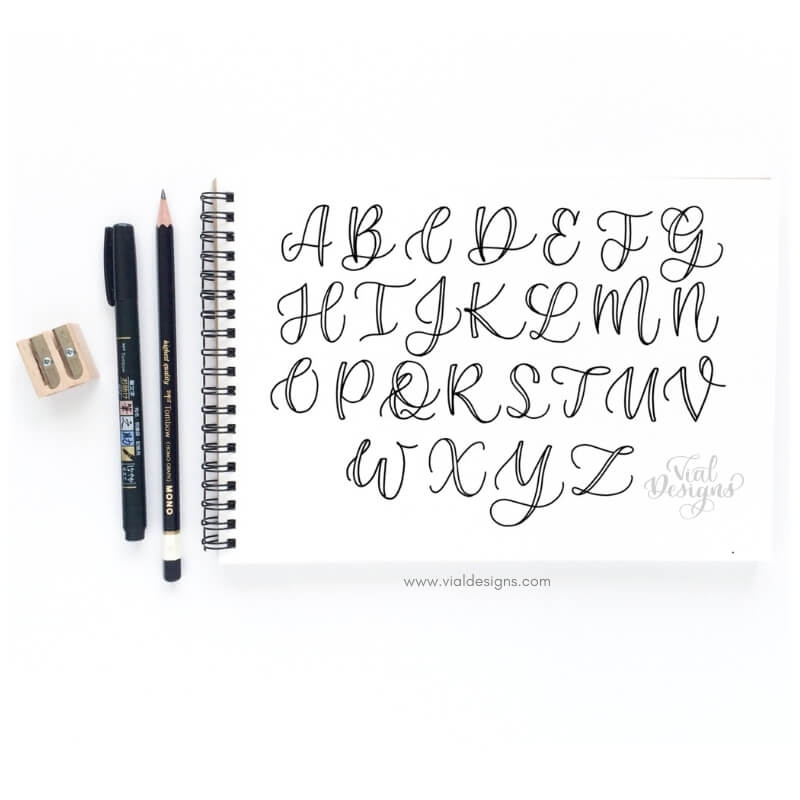 A B C D E F G
H I J K L M N
O P Q R S T U V
W X Y Z
Vial
Designs
www.vialdesigns.com
highest quality Tombow ( MONO GRAPH ) MONO